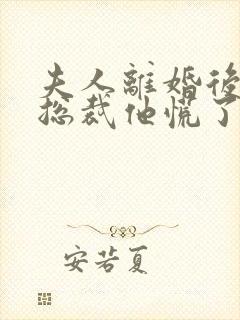 夫人離婚後
总裁他慌了
安若夏